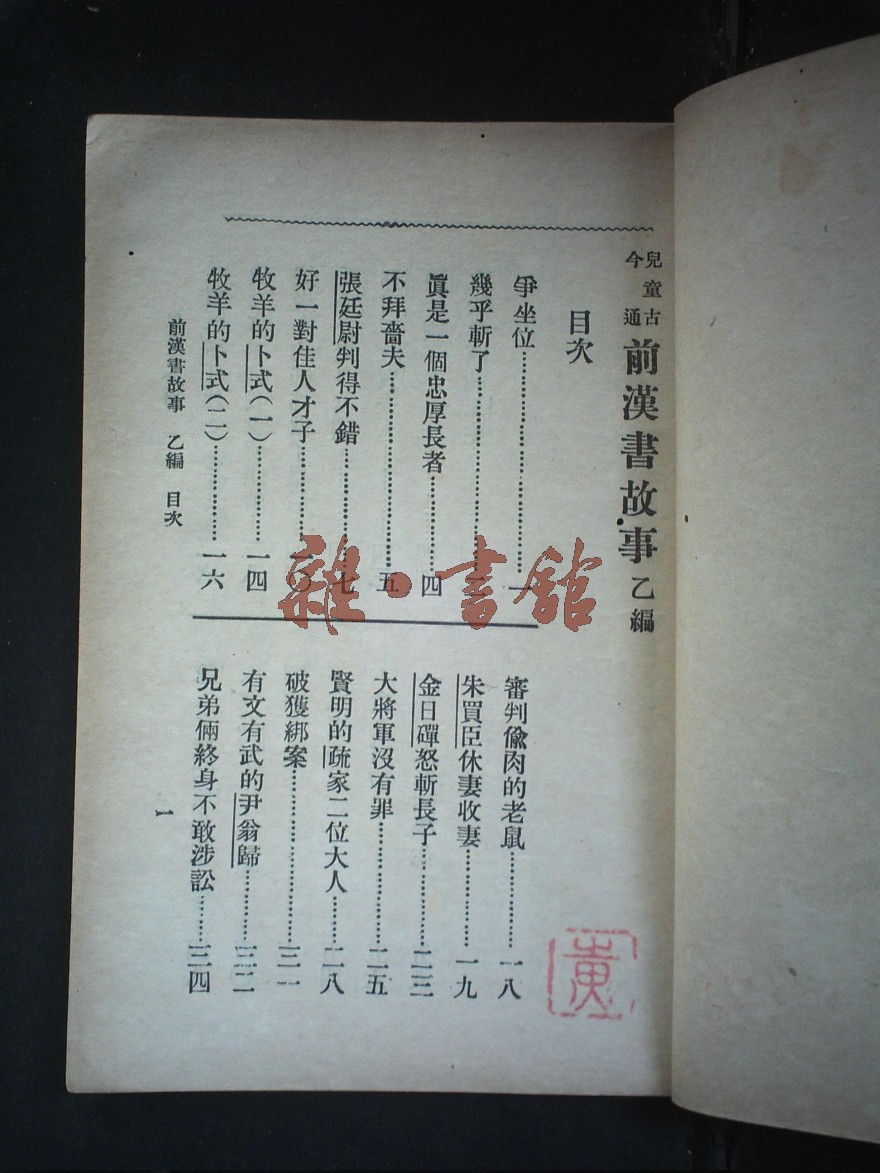 兒童古今通
前漢書故事 乙編
目次
爭坐位……………一
幾乎斬了……………二
眞是一個忠厚長者……………四
不拜嗇夫……………五
張廷尉判得不錯……………七
好一對佳人才子……………一〇
牧羊的卜式(一)……………一四
牧羊的卜式(二)……………一六
審判偸肉的老鼠……………一八
朱買臣休妻收妻……………一九
金日磾怒斬長子……………二三
大將軍沒有罪……………二五
賢明的疏家二位大人……………二八
破獲綁案……………三一
有文有武的尹翁歸……………三二
兄弟倆終身不敢涉訟……………三四
前漢書故事 乙編 目次
一
雜·書館
黄